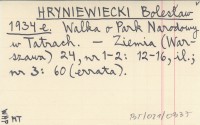 HRYNIEWIECKI Bolesław
1934 e. Walka o Park Narodowy
w Tatrach. — Ziemia (War-
szawa) 24, nr 1-2: 12-16, il.;
nr 3: 60 (errata).
WAP MT